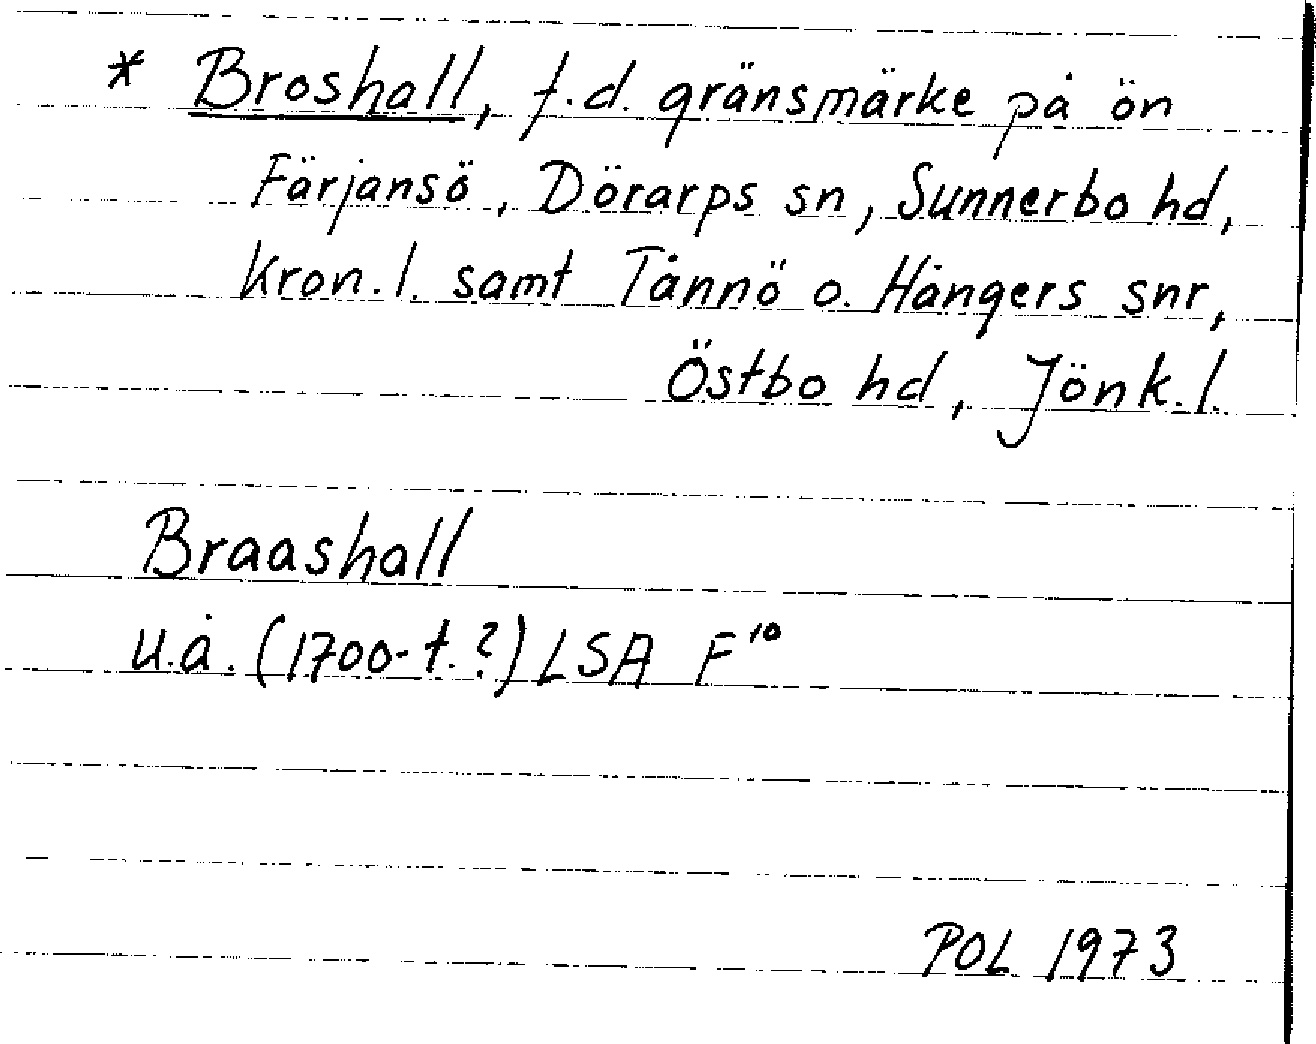 * Broshall, f.d. gränsmärke på ön
Färjansö, Dörarps sn, Sunnerbo hd,
Kron. l. samt Tånnö o. Hångers snr,
Östbo hd, Jönk. l.
Braashall
u.å. (1700-t.?) LSA F¹⁰
POL 1973